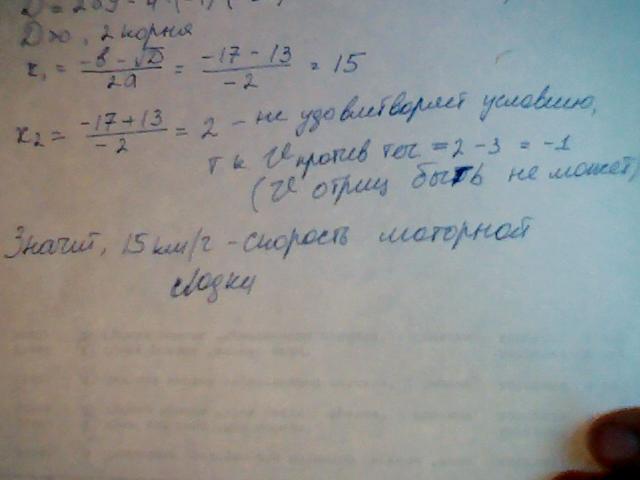 D = 289 - 4 · (-1) · (-
D>0, 2 корня
x₁ = -b - √D / 2a = -17 - 13 / -2 = 15
x₂ = -17 + 13 / -2 = 2 - не удовлетворяет условию,
т к V против теч = 2 - 3 = -1
(V отриц быть не может)
Значит, 15 км/г - скорость моторной
лодки